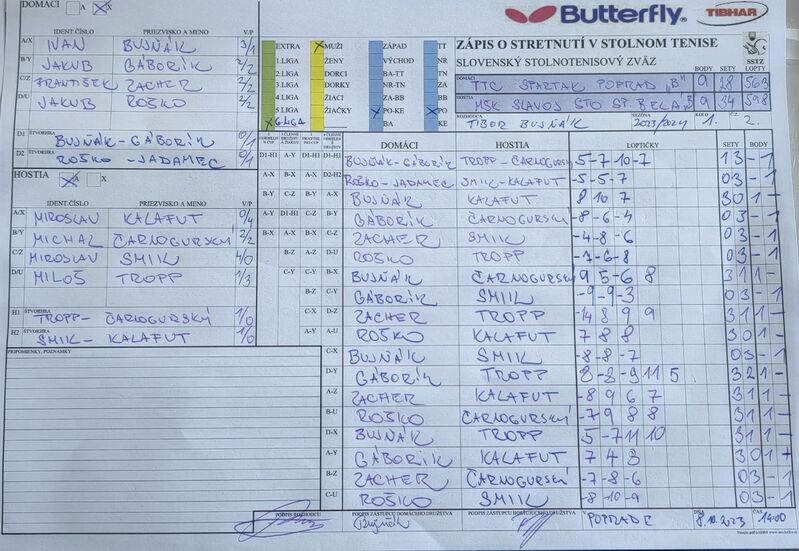 DOMÁCI A X
Butterfly TIBHAR
IDENT.ČÍSLO PRIEZVISKO A MENO V/P
A/X IVAN BUJŇÁK 3/1
B/Y JAKUB GÁBORÍK 2/2
C/Z FRANTIŠEK ZACHER 2/2
D/U JAKUB ROŠKO 2/2
D1 ŠTVORHRA BUJŇÁK-GÁBORÍK 0/1
D2 ROŠKO-JADAMEC 0/1
HOSTIA A X
IDENT.ČÍSLO PRIEZVISKO A MENO V/P
A/X MIROSLAV KALAFUT 0/4
B/Y MICHAL ČARNOGURSKÝ 2/2
C/Z MIROSLAV SMIK 4/0
D/U MILOŠ TROPP 1/3
H1 ŠTVORHRA TROPP-ČARNOGURSKÝ 1/0
H2 ŠTVORHRA SMIK-KALAFUT 1/0
PRIPOMIENKY, POZNÁMKY
EXTRA MUŽI ZÁPAD TT
1.LIGA ŽENY VÝCHOD NR
2.LIGA DORCI BA-TT TN
3.LIGA DORKY NR-TN ZA
4.LIGA ŽIACI ZA-BB BB
5.LIGA ŽIAČKY PO-KE PO
6.LIGA BA KE
ZÁPIS O STRETNUTÍ V STOLNOM TENISE
SLOVENSKÝ STOLNOTENISOVÝ ZVÄZ
SSTZ
BODY SETY LOPT.
DOMÁCI TTC SPARTAK POPRAD „B" 9 28 563
HOSTIA MŠK SLAVOJ STO SP. BELÁ „B" 9 34 598
ROZHODCA TIBOR BUJŇÁK SEZÓNA 2023/2024 KOLO 1. Č.ZÁP. 2.
DOMÁCI HOSTIA LOPTIČKY SETY BODY
D1-H1 A-Y B-X D1-H1 D1-H1 BUJŇÁK-GÁBORÍK TROPP-ČARNOGURSKÝ 5-7-10-7 1 3 - 1
A-X B-X A-X D2-H2 ROŠKO-JADAMEC SMIK-KALAFUT -5-5-7 0 3 - 1
B-Y C-Z B-Y A-X BUJŇÁK KALAFUT 8 10 7 3 0 1 -
A-Y D1-H1 C-Z B-Y GÁBORÍK ČARNOGURSKÝ -8-6-4 0 3 - 1
B-X A-X B-X C-Z ZACHER SMIK -4-8-6 0 3 - 1
B-Z A-Z D-U ROŠKO TROPP -7-6-8 0 3 - 1
C-Y C-Y B-X BUJŇÁK ČARNOGURSKÝ 9 5-6 8 3 1 1 -
B-Z C-Y GÁBORÍK SMIK -9-9-3 0 3 - 1
C-X D-Z ZACHER TROPP -14 8 9 9 3 1 1 -
A-Y A-U ROŠKO KALAFUT 7 8 8 3 0 1 -
C-X BUJŇÁK SMIK -8-8-7 0 3 - 1
D-Y GÁBORÍK TROPP 8-8-9 11 5 3 2 1 -
A-Z ZACHER KALAFUT -8 9 6 7 3 1 1 -
B-U ROŠKO ČARNOGURSKÝ -7 9 8 8 3 1 1 -
D-X BUJŇÁK TROPP 5-7 11 10 3 1 1 -
A-Y GÁBORÍK KALAFUT 7 4 8 3 0 1 -
B-Z ZACHER ČARNOGURSKÝ -7-8-6 0 3 - 1
C-U ROŠKO SMIK -8-10-9 0 3 - 1
PODPIS ROZHODCU PODPIS ZÁSTUPCU DOMÁCEHO DRUŽSTVA PODPIS ZÁSTUPCU HOSŤUJÚCEHO DRUŽSTVA V POPRADE DŇA 8.10.2023 ČAS 14:00